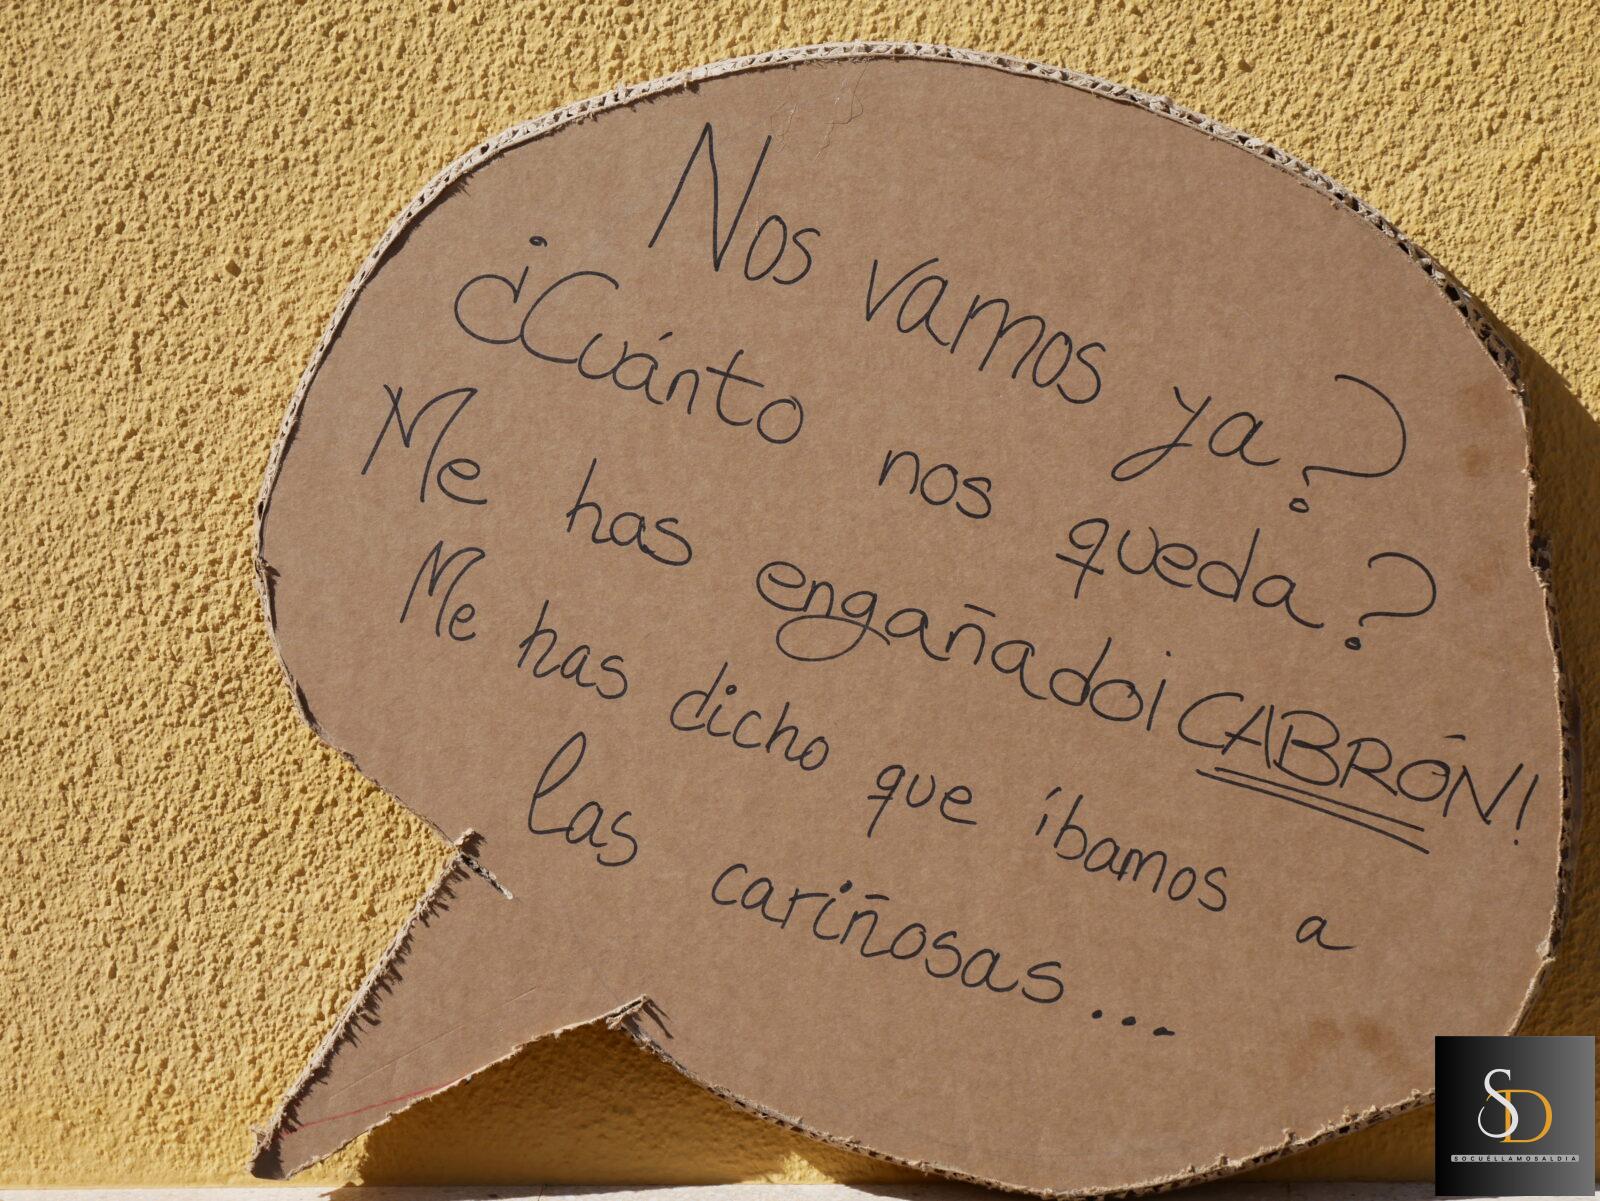 Nos vamos ya?
¿Cuánto nos queda?
Me has engañado¡CABRÓN!
Me has dicho que íbamos a
las cariñosas...
SD
SOCUÉLLAMOSALDIA